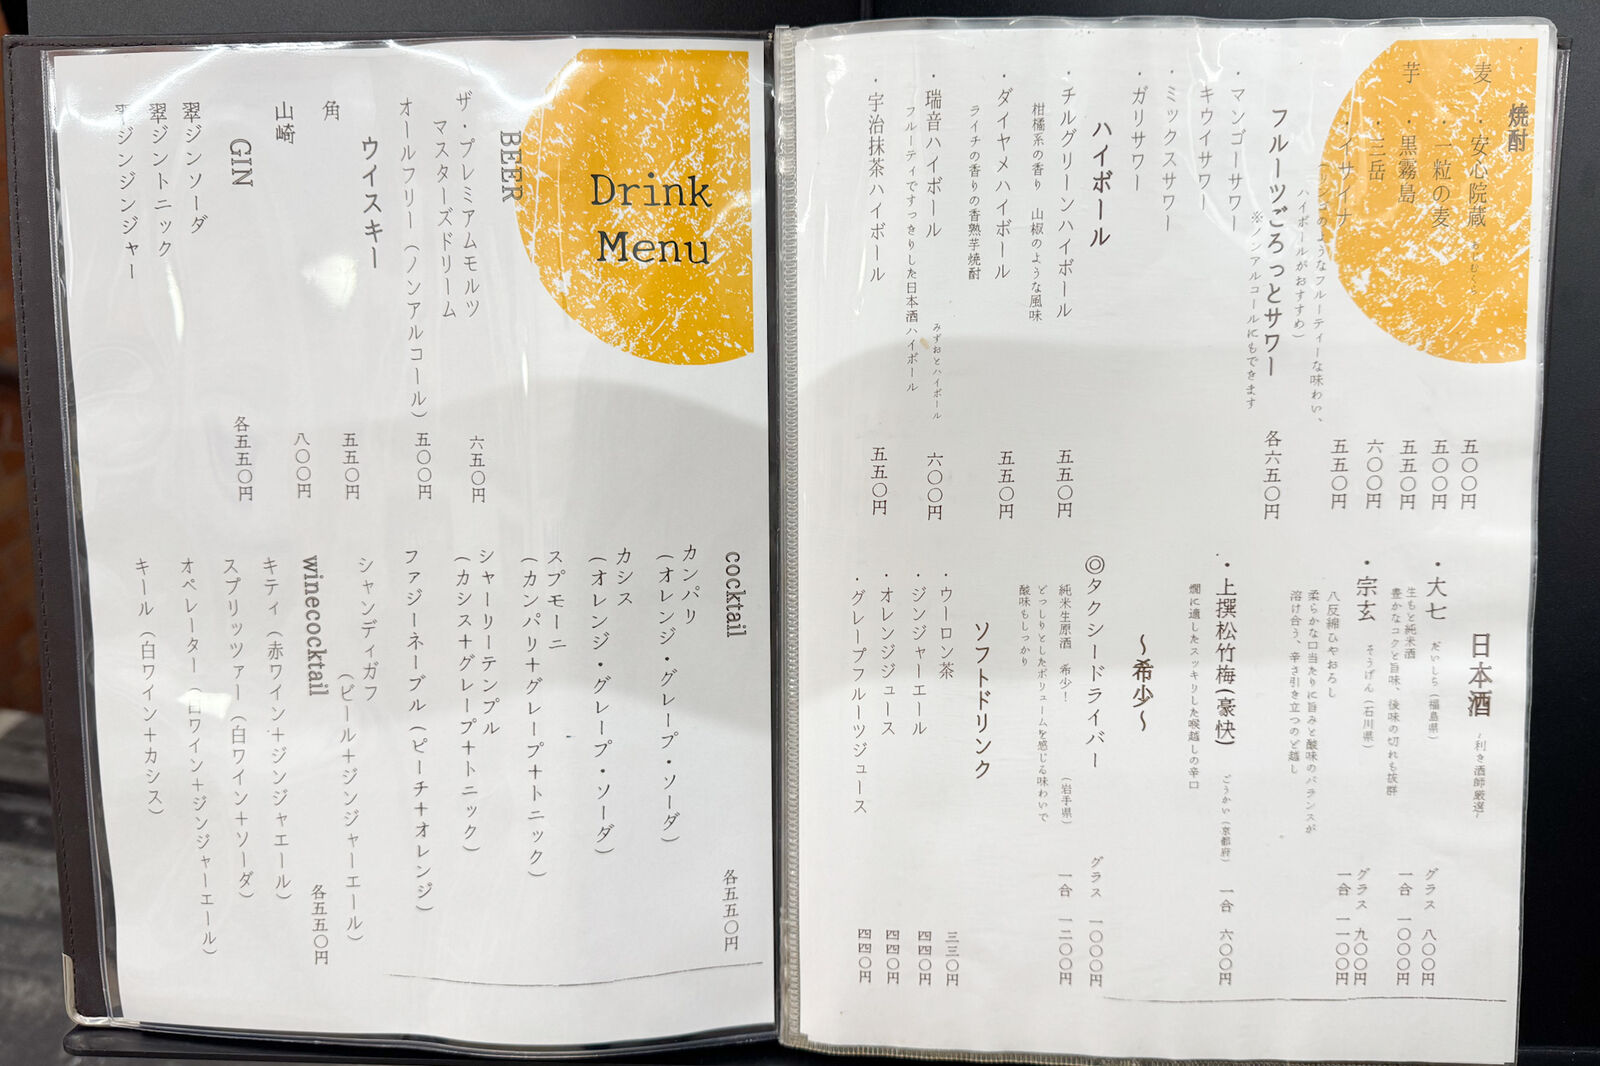 焼酎
麦
・安心院蔵 あじむくら
五〇〇円
・一粒の麦
五〇〇円
芋
・黒霧島
五五〇円
・三岳
六〇〇円
・イサイナ
五五〇円
(リンゴのようなフルーティーな味わい、
ハイボールがおすすめ)
フルーツごろっとサワー
各六五〇円
※ノンアルコールにもできます
・マンゴーサワー
・キウイサワー
・ミックスサワー
・ガリサワー
ハイボール
・チルグリーンハイボール
五五〇円
柑橘系の香り 山椒のような風味
・ダイヤメハイボール
五五〇円
ライチの香りの香熟芋焼酎
・瑞音ハイボール みずおとハイボール
六〇〇円
フルーティですっきりした日本酒ハイボール
・宇治抹茶ハイボール
五五〇円
日本酒 ~利き酒師厳選~
・大七 だいしち(福島県)
グラス 八〇〇円
一合 一〇〇〇円
生もと純米酒
豊かなコクと旨味、後味の切れも抜群
・宗玄 そうげん(石川県)
グラス 九〇〇円
一合 一一〇〇円
八反錦ひやおろし
柔らかな口当たりに旨みと酸味のバランスが
溶け合う、辛さ引き立つのど越し
・上撰松竹梅(豪快) ごうかい(京都府)
一合 六〇〇円
燗に適したスッキリした喉越しの辛口
~希少~
◎タクシードライバー
(岩手県)
グラス 一〇〇〇円
一合 一二〇〇円
純米生原酒 希少!
どっしりとしたボリュームを感じる味わいで
酸味もしっかり
ソフトドリンク
・ウーロン茶
三三〇円
・ジンジャーエール
四四〇円
・オレンジジュース
四四〇円
・グレープフルーツジュース
四四〇円
Drink
Menu
BEER
ザ・プレミアムモルツ
マスターズドリーム
六五〇円
オールフリー(ノンアルコール)
五〇〇円
ウイスキー
角
五五〇円
山崎
八〇〇円
GIN
各五五〇円
翠ジンソーダ
翠ジントニック
翠ジンジンジャー
cocktail
各五五〇円
カンパリ
(オレンジ・グレープ・ソーダ)
カシス
(オレンジ・グレープ・ソーダ)
スプモーニ
(カンパリ+グレープ+トニック)
シャーリーテンプル
(カシス+グレープ+トニック)
ファジーネーブル(ピーチ+オレンジ)
シャンディガフ
(ビール+ジンジャーエール)
winecocktail
各五五〇円
キティ(赤ワイン+ジンジャエール)
スプリッツァー(白ワイン+ソーダ)
オペレーター(白ワイン+ジンジャーエール)
キール(白ワイン+カシス)